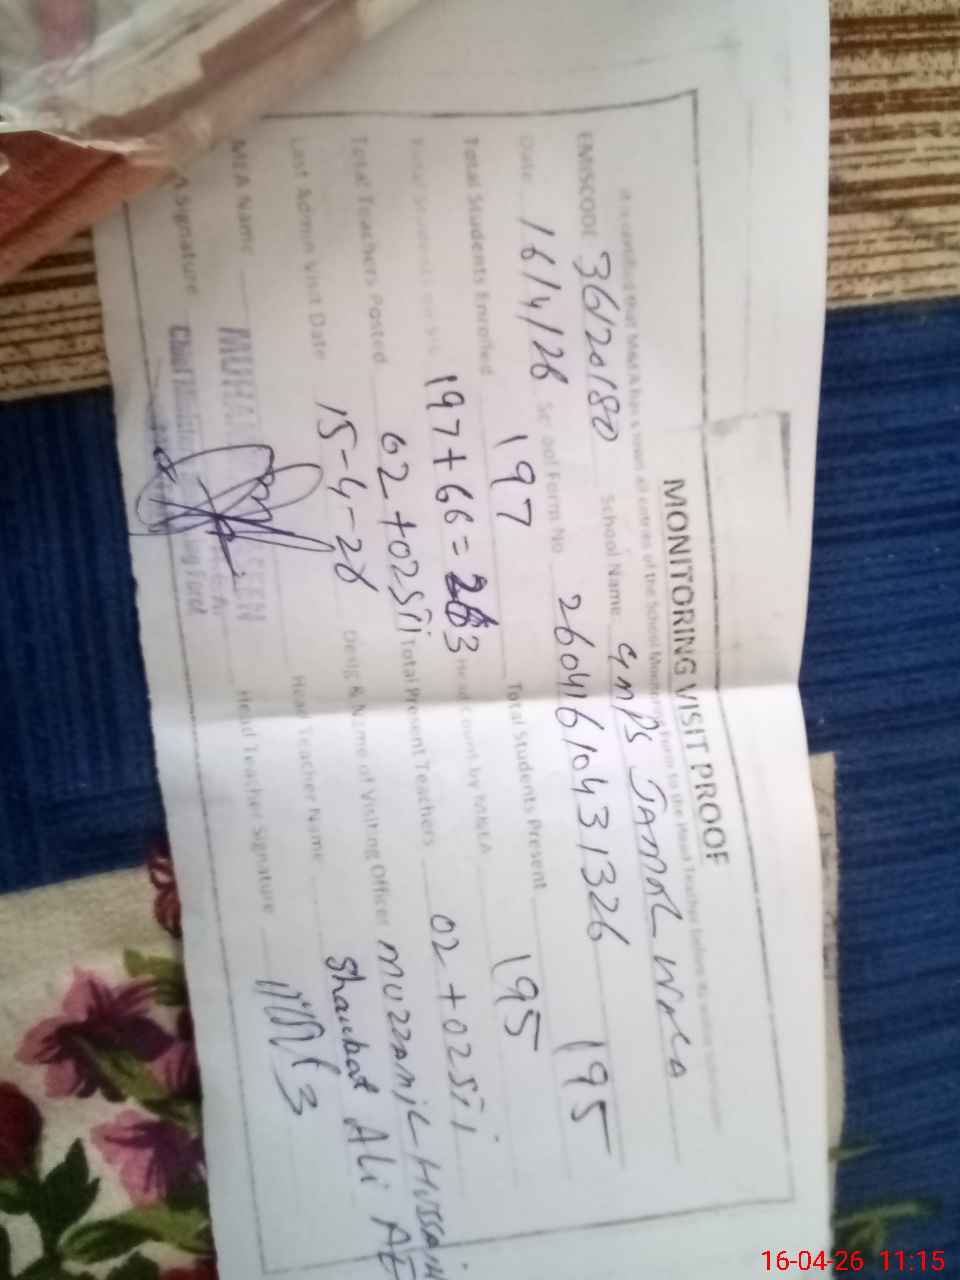 MONITORING VISIT PROOF
It is certified that M&EA has shown all entries of the School Monitoring Form to the Head Teacher before
EMISCODE 36120180 School Name GMPS JAMAL WALA
Date 16/4/26 Form No 260416/10431326 195
Total Students Enrolled 197 Total Students Present 195
197+66=263 Head Count by M&EA
Total Teachers Posted 02+02Sti Total Present Teachers 02+02Sti
Last Admin Visit Date 15-4-26 Desig & Name of Visiting Officer MUZZAMIL HUSSAIN
MEA Name Head Teacher Name Shaukat Ali
Signature Head Teacher Signature
16-04-26 11:15